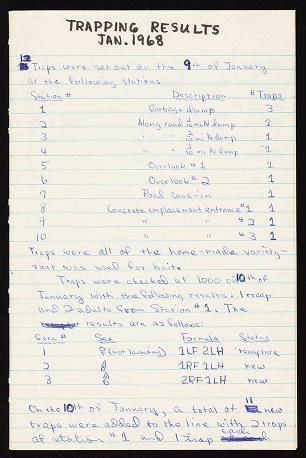 TRAPPING RESULTS
JAN. 1968
12 Traps were set out on the 9th of January
at the following stations:
Station # Description # Traps
1 Garbage dump 3
2 Along road 1/10 mi N dump 1
3 " " mi N dump 1
4 " " mi N dump 1
5 Overlook #1 1
6 Overlook #2 1
7 Road cave-in 1
8 Concrete emplacement entrance #1 1
9 " " #2 1
10 " " #3 1
Traps were all of the home-made variety-
suet was used for bait.
Traps were checked at 1000 on 10th of
January with the following results: 1 recap
and 2 adults from Station #1. The
results are as follows:
Sex Formula Status
1 ♀ (not lactating) 1LF 2LH recapture
2 1RF 1LH new
3 2RF 1LH new
On the 10th of January, a total of 11 new
traps were added to the line with 2 traps
at station #1 and 1 trap each